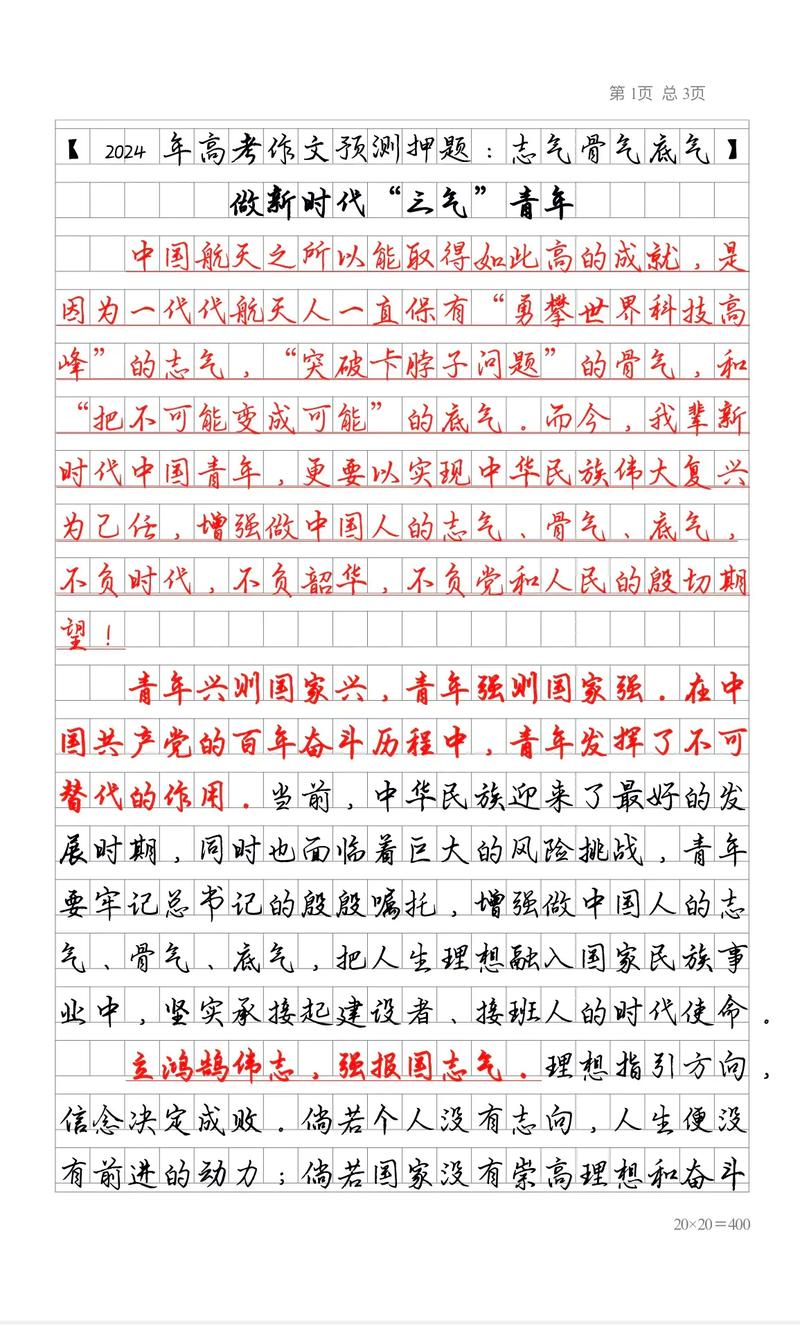 第1页 总3页
【2024年高考作文预测押题：志气骨气底气】
做新时代“三气”青年
中国航天之所以能取得如此高的成就，是
因为一代代航天人一直保有“勇攀世界科技高
峰”的志气，“突破卡脖子问题”的骨气，和
“把不可能变成可能”的底气。而今，我辈新
时代中国青年，更要以实现中华民族伟大复兴
为己任，增强做中国人的志气、骨气、底气，
不负时代，不负韶华，不负党和人民的殷切期
望！
青年兴则国家兴，青年强则国家强。在中
国共产党的百年奋斗历程中，青年发挥了不可
替代的作用。当前，中华民族迎来了最好的发
展时期，同时也面临着巨大的风险挑战，青年
要牢记总书记的殷殷嘱托，增强做中国人的志
气、骨气、底气，把人生理想融入国家民族事
业中，坚实承接起建设者、接班人的时代使命。
立鸿鹄伟志，强报国志气。理想指引方向，
信念决定成败。倘若个人没有志向，人生便没
有前进的动力；倘若国家没有崇高理想和奋斗
20×20=400